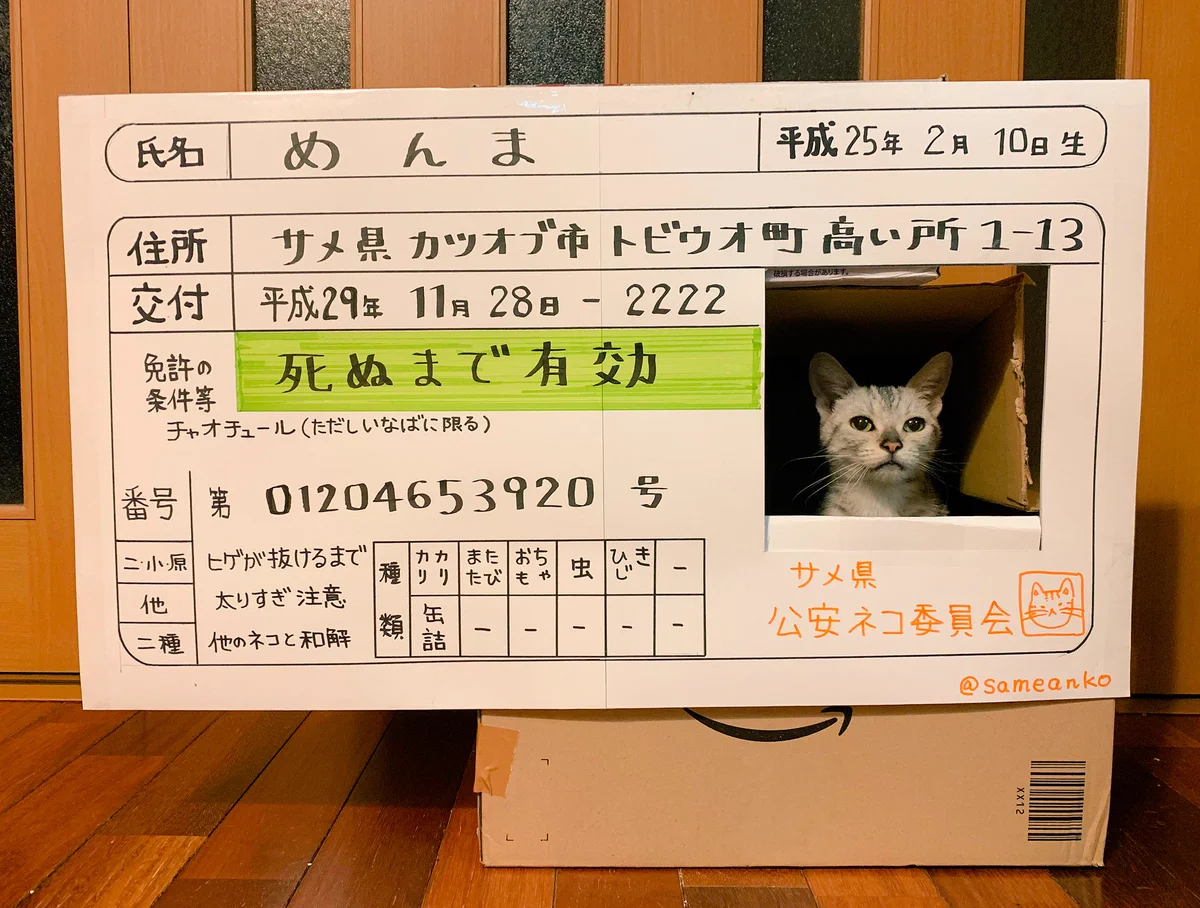 氏名 めんま 平成25年 2月 10日生
住所 サメ県 カツオブ市 トビウオ町 高い所 1-13
交付 平成29年 11月 28日 - 2222
破損する場合があります。
免許の
条件等
死ぬまで有効
チャオチュール(ただしいなばに限る)
番号 第 01204653920 号
二・小・原 ヒゲが抜けるまで
他 太りすぎ注意
二種 他のネコと和解
種類 カリカリ またたび おもちゃ 虫 ひじき -
缶詰 - - - - -
サメ県
公安ネコ委員会
@sameanko
XX12